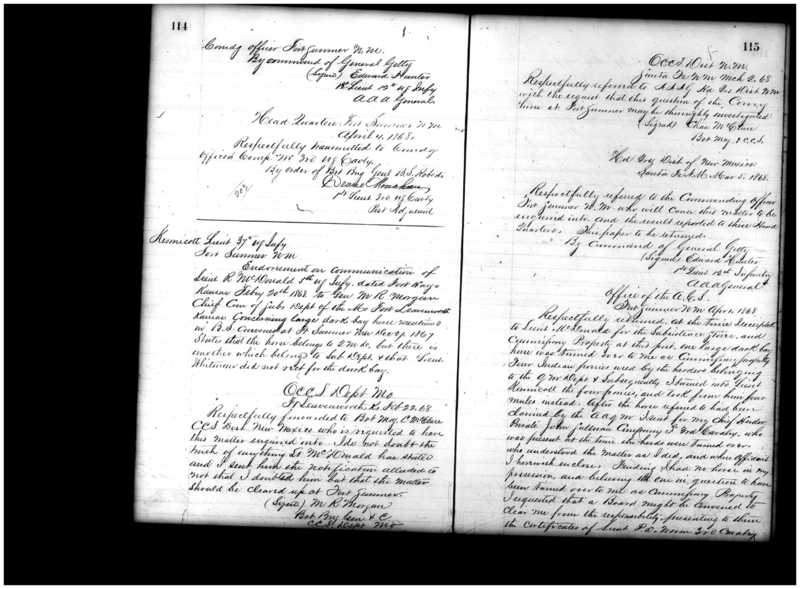 114
Comdg officer Fort Sumner N.M.
By command of General Getty
(Signed) Edward Hunter
1st Lieut 12th US Infy
A A A General
Head Quarters Fort Sumner N M
April 4, 1868
Respectfully transmitted to Comdg
Officer Comp "I" 3rd US Cavly.
By order of Bvt Brig Genl B.S. Roberts
1st Lieut 3rd US Cavly
Post Adjutant
Kennicott Lieut 37th US Infy
Fort Sumner N M
Endorsement on communication of
Lieut R McDonald 5th US Infy. dated Fort Hays
Kansas Feby 20th 1868 to Gen M R Morgan
Chief Com of Subs Dept of the Mo Fort Leavenworth
Kansas Concerning large dark bay horse mentioned
in B.S. Convened at Ft Sumner Nov 27 1867
States that the horse belongs to 2 m Dr, but there is
another which belongs to Sub Dept & that Lieut
Whitmore did not rct for the dark bay.
O C C S Dept Mo
Ft Leavenworth Ks Feb 22. 68
Respectfully forwarded to Bvt Maj C McClure
C C S Dist New Mexico who is requested to have
this matter enquired into. I do not doubt the
truth of anything Lt McDonald has stated
and I sent him the notification alluded to
not that I doubted him but that the matter
should be cleared up at Fort Sumner.
(Signed) M R Morgan
Bvt Brig Gen & C
C C S Dept Mo
115
O C C S Dist N.M.
Santa Fe N M Mch 2. 68
Respectfully referred to A A A G Hd Qrs Dist N M
with the request that this question of the
horse at Fort Sumner may be thoroughly investigated
(Signed) Chas McClure
Bvt Maj & C C S.
Hd Qrs Dist of New Mexico
Santa Fe N M Mar 5. 1868.
Respectfully refered to the Commanding Officer
Fort Sumner N.M. who will cause this matter to be
enquired into and the result reported to these Head
Quarters. This paper to be returned.
By Command of General Getty
(Signed) Edward Hunter
1st Lieut 12th Infantry
A A A General
Office of the A.C.S.
Fort Sumner N M Apr 6 1868
Respectfully returned, at the time I receipted
to Lieut McDonald for the Subsistence Stores, and
Commissary Property at this post, one large dark bay
horse was turned over to me as Commissary property
Four Indian ponies used by the herders belonging
to the Q M Dept & Subsequently I turned into Lieut
Kennicott the four ponies, and took from him four
mules instead. After the horse refered to had been
claimed by the A A Q M I sent for my Chief Herder
Private John Company I. 3rd Cavalry, who
was present at the time the herds were turned over
who understood the matter as I did, and whose affidavit
I herewith enclose. Finding I had no horse in my
possession, and believing the one in question to have
been turned over to me as Commissary Property
I requested that a Board might be convened to
clear me from the responsibility, presenting to them
the certificates of Lieut 3rd Cavalry